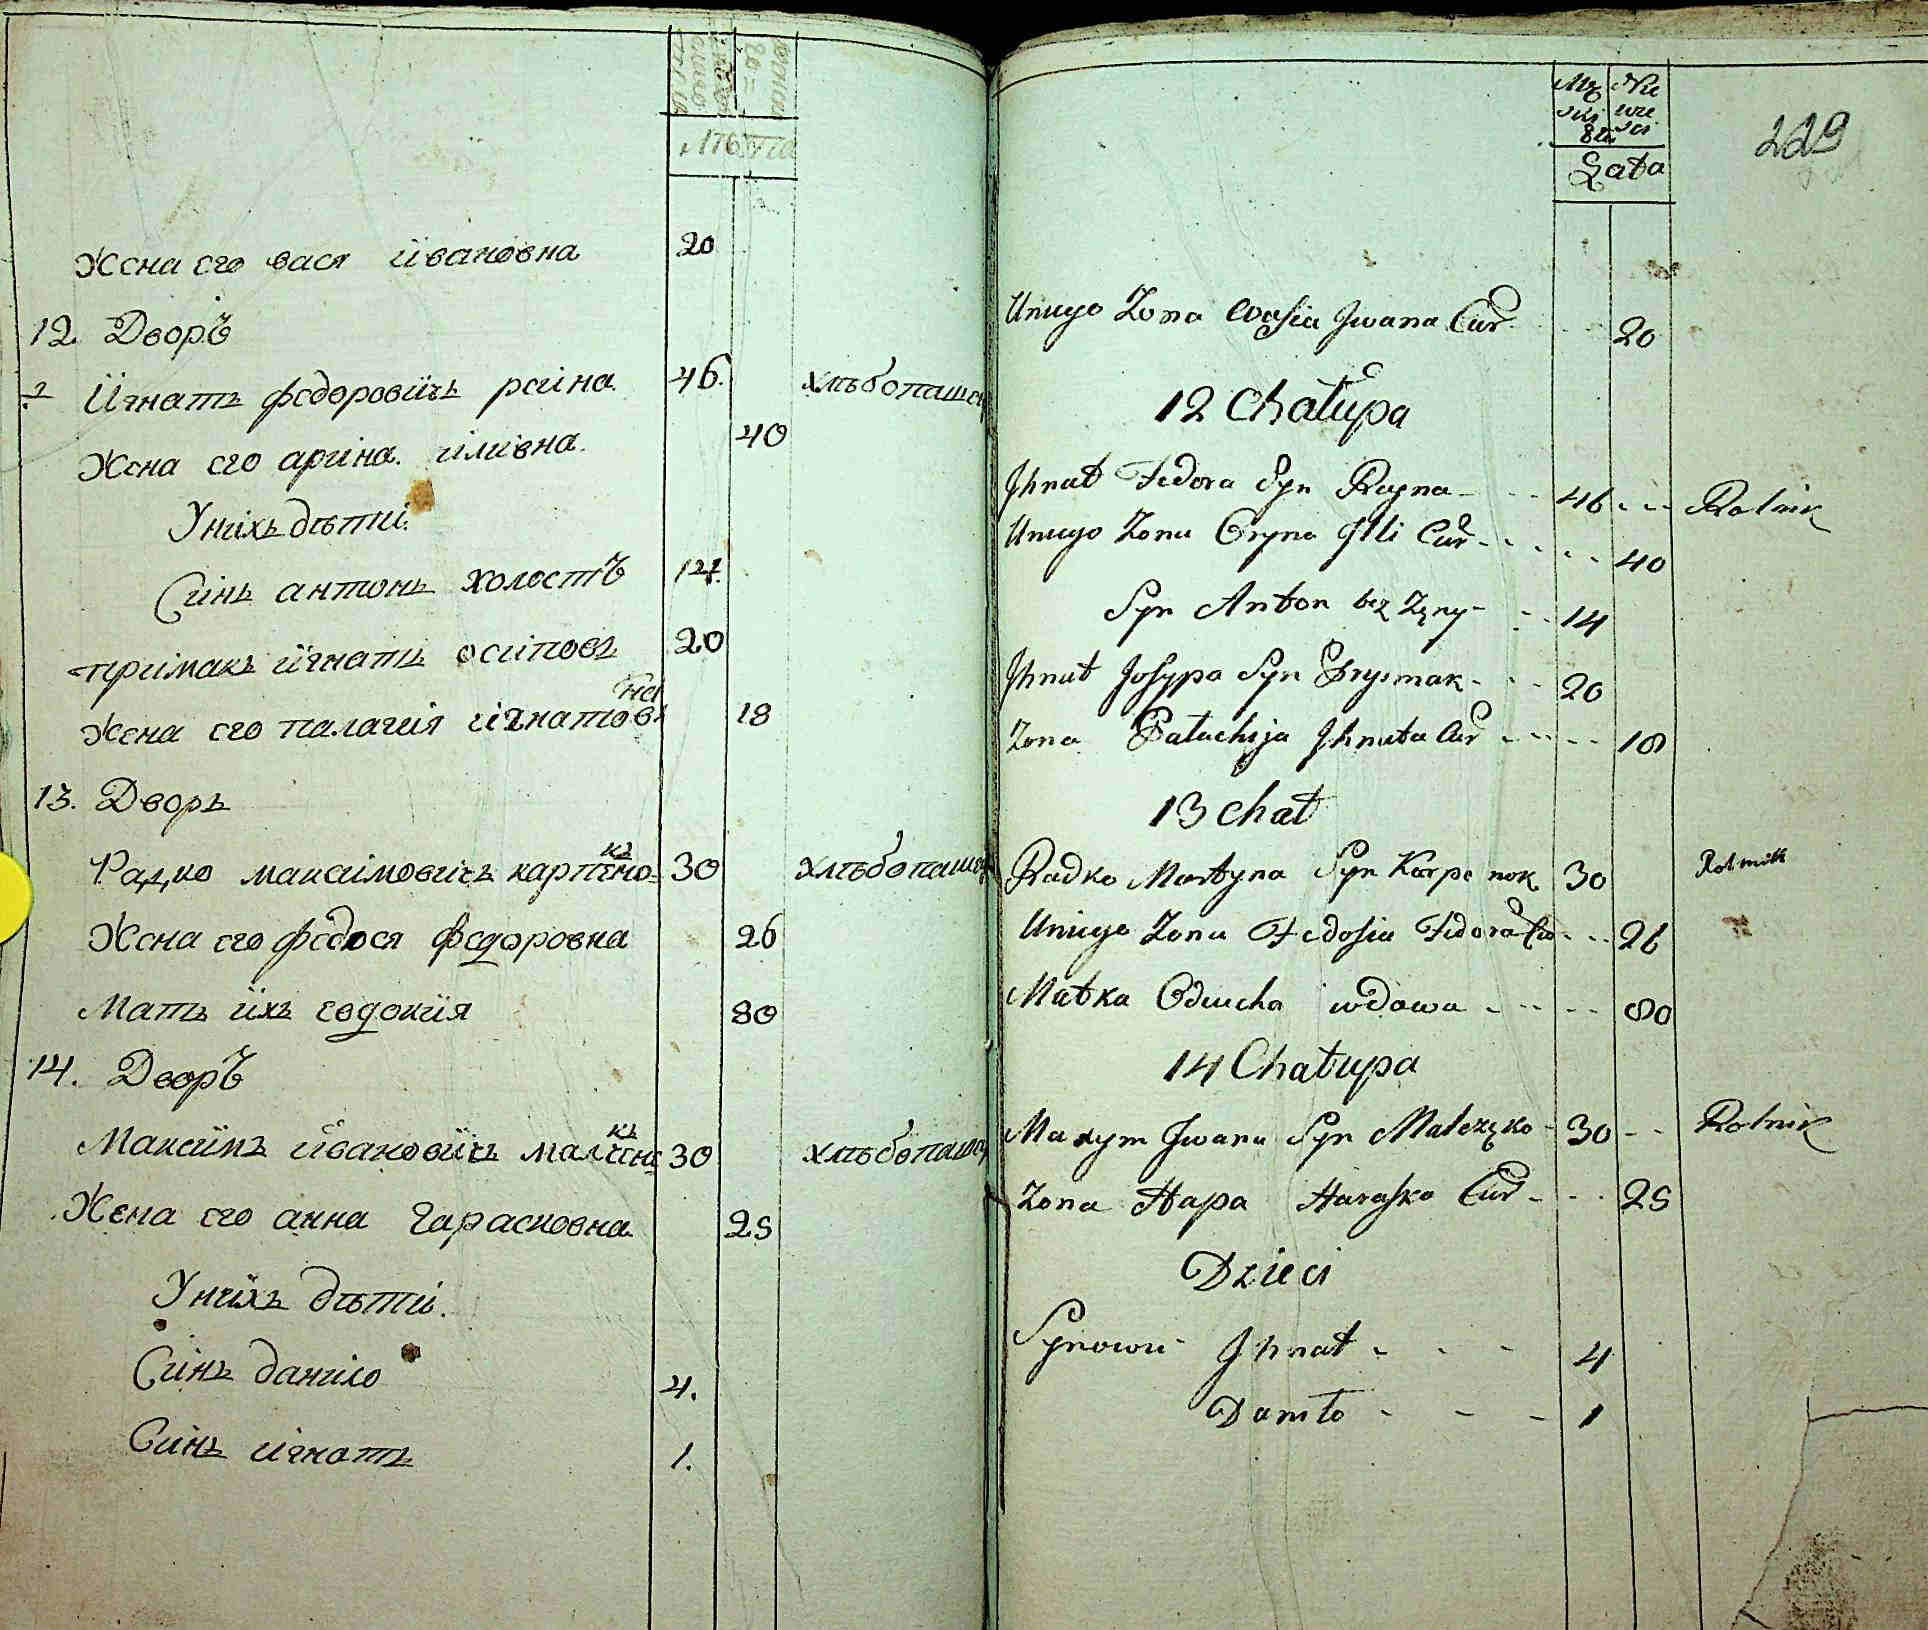 лѣта
Жена его вася ивановна 20
12. Дворъ
Игнатъ федоровичъ раина 46. хлѣбопашец
Жена его арина. илiвна. 40
У нихъ дѣти.
Синъ антонъ холостъ 14.
примакъ игнатъ осиповъ 20
Жена его палагия игнатовна 18
13. Дворъ
Радко максимовичъ карпенокъ 30 хлѣбопашец
Жена его федося федоровна 26
Мать ихъ евдокия 80
14. Дворъ
Максимъ ивановичъ малченокъ 30 хлѣбопашец
Жена его анна гарасковна 25
У нихъ дѣти.
Синъ данило 4.
Синъ игнатъ 1.
229
Lata
Uniego Zona Wasia Jwana Cur 20
12 Chałupa
Jhnat Fedora Syn Rayna 46 Rolnik
Uniego Zona Oryna Jlli Cur 40
Syn Anton bez Zony 14
Jhnat Josypa Syn Prysmak 20
Zona Pałachija Jhnata Cur 18
13 chat
Radko Martyna Syn Karpenok 30 Rolnik
Uniego Zona Fedosia Fidora Cur 26
Matka Oducha wdowa 80
14 Chałupa
Maxym Jwana Syn Malczęko 30 Rolnik
Zona Hapa Harasko Cur 25
Dzieci
Synowie Jhnat 4
Daniło 1